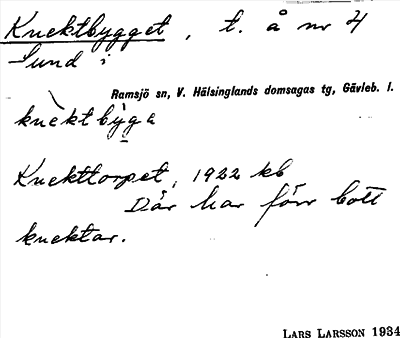 Knektbygget, t. å nr 4
Sund i
Ramsjö sn, V. Hälsinglands domsagas tg, Gävleb. l.
knèktbỳ̱ga
Knekttorpet, 1922 kb
Där har förr bott
knektar.
LARS LARSSON 1934